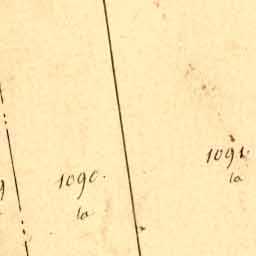 1090.
la
1091.
la
9